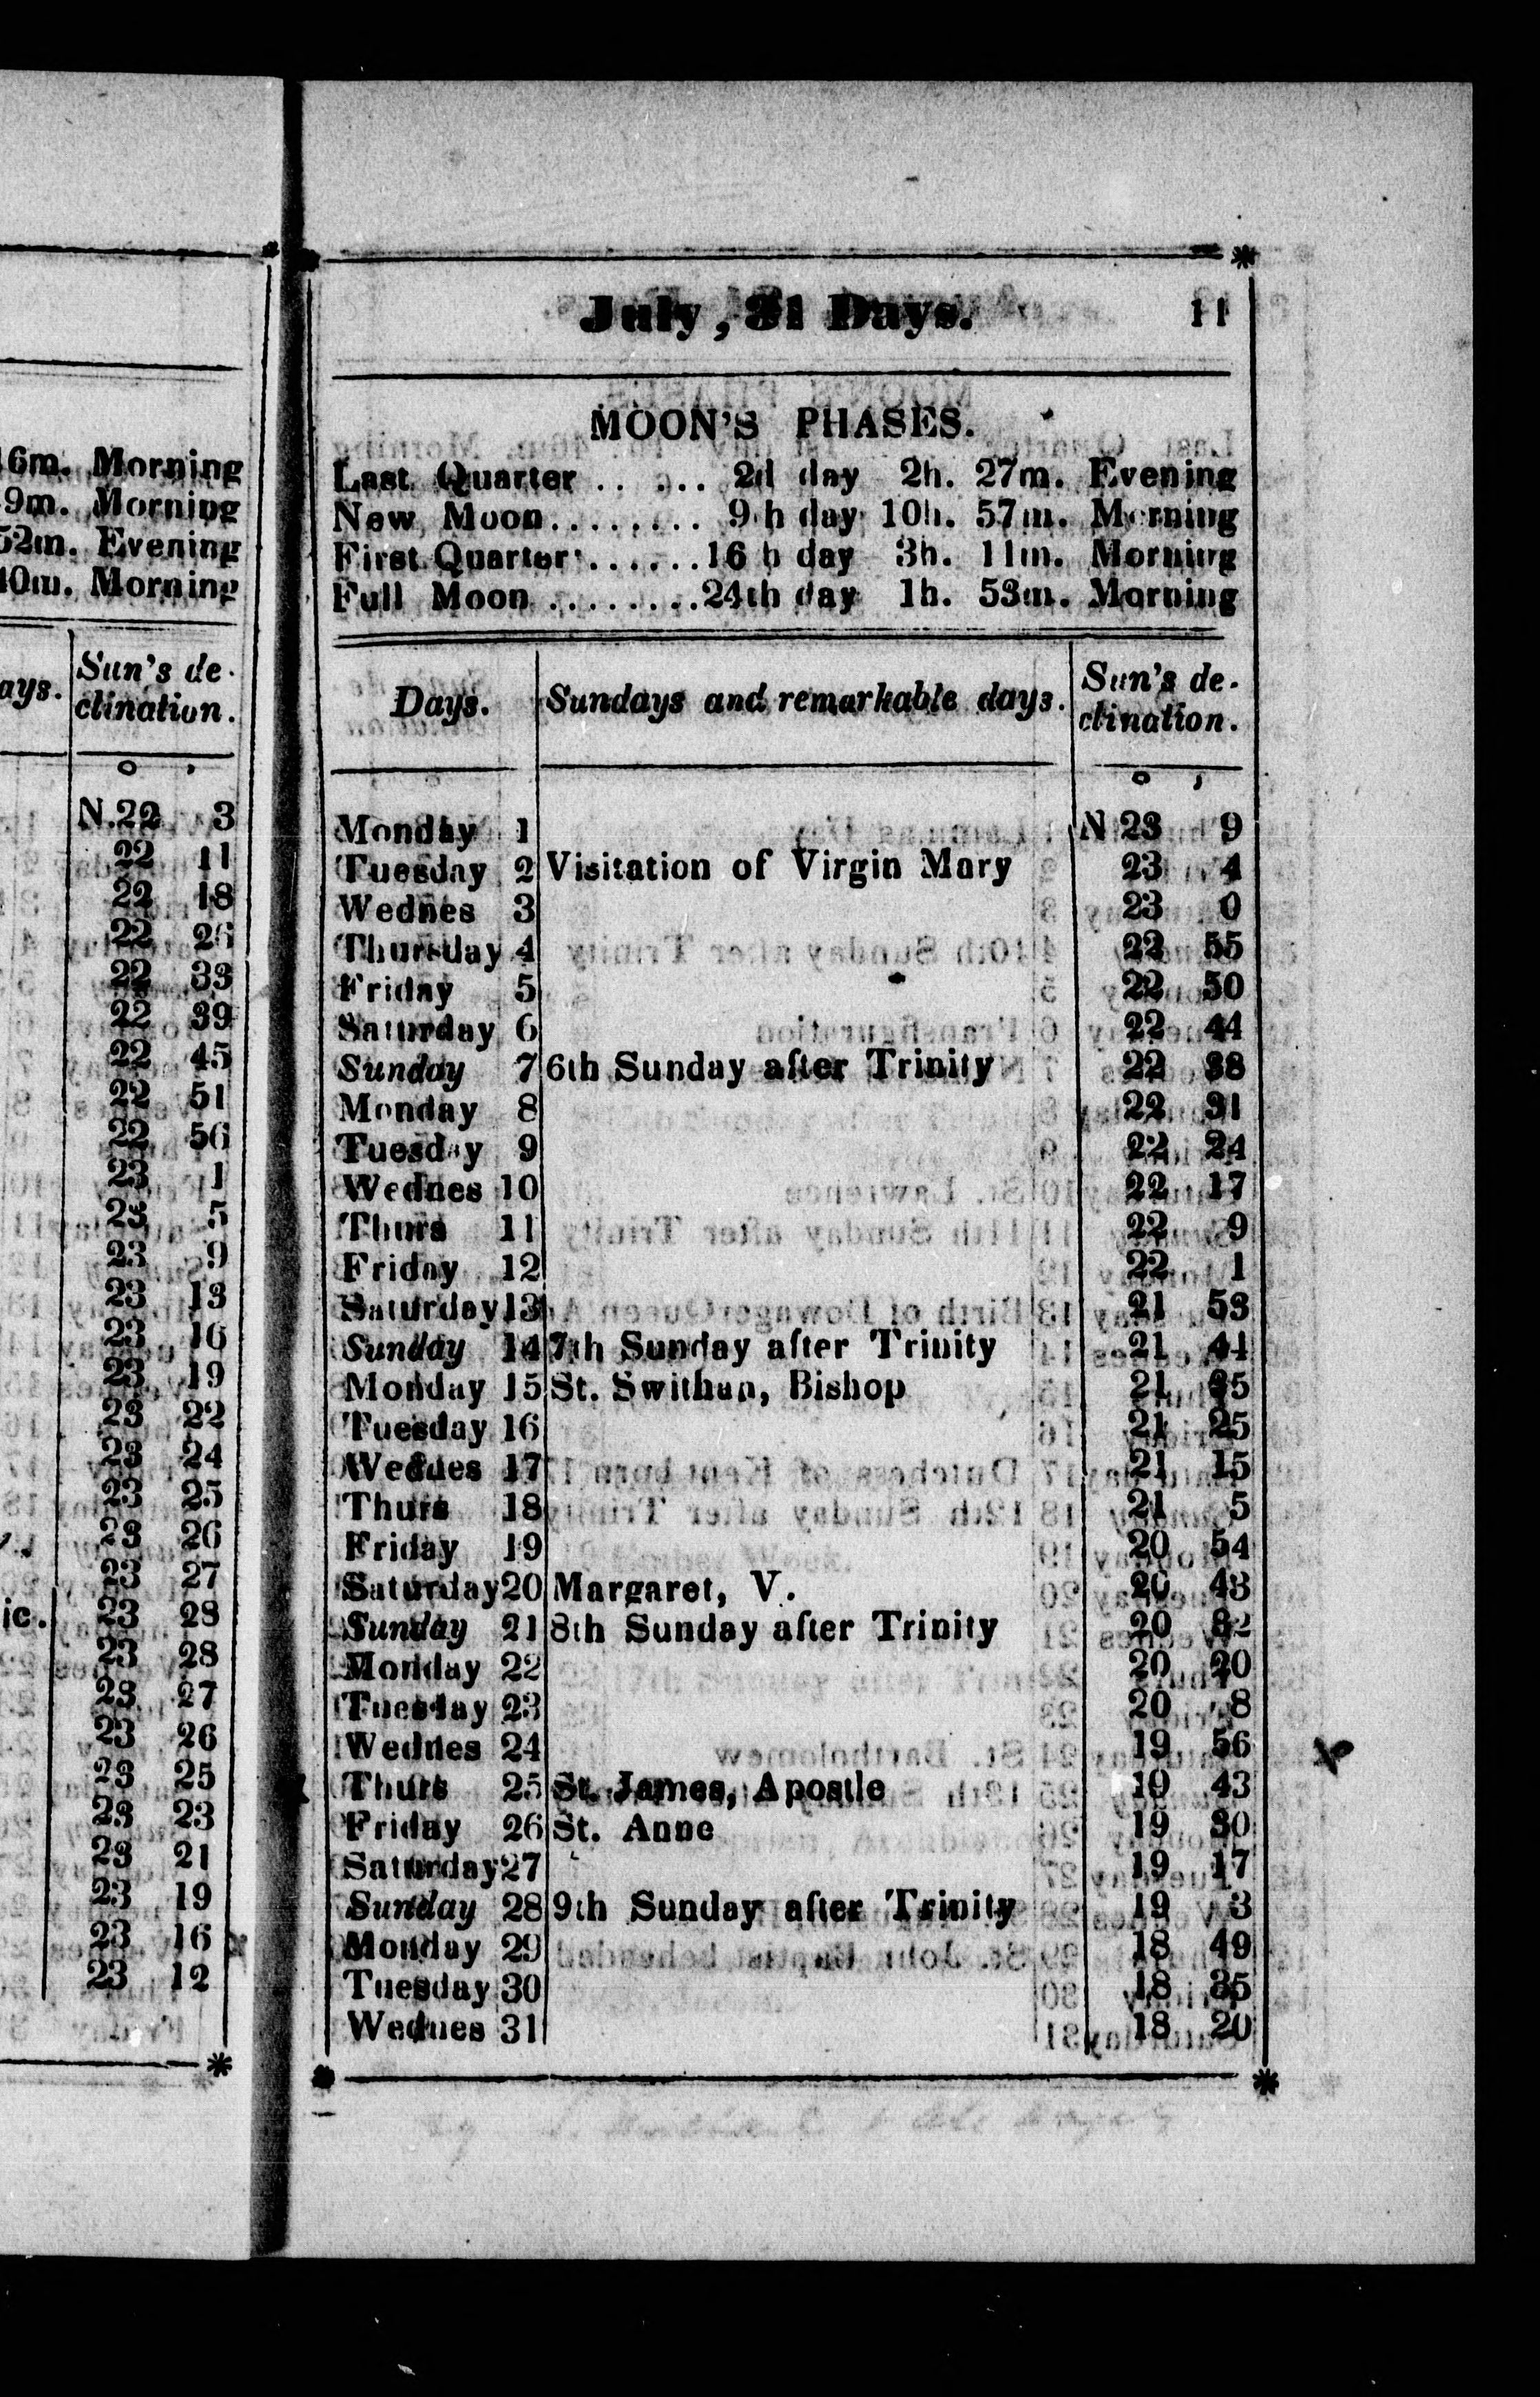 6m. Morning
9m. Morning
52m. Evening
40m. Morning
ays. Sun's de-
clination.
° ,
N.22 3
22 11
22 18
22 26
22 33
22 39
22 45
22 51
22 56
23 1
23 5
23 9
23 13
23 16
23 19
23 22
23 24
23 25
23 26
23 27
ic. 23 28
23 28
23 27
23 26
23 25
23 23
23 21
23 19
23 16
23 12
July, 31 Days. 11
MOON'S PHASES.
Last Quarter .. ... 2d day 2h. 27m. Evening
New Moon........ 9 h day 10h. 57m. Morning
First Quarter ......16 h day 3h. 11m. Morning
Full Moon ........24th day 1h. 53m. Morning
Days. Sundays and remarkable days. Sun's de-
clination.
° ,
Monday 1 N 23 9
Tuesday 2 Visitation of Virgin Mary 23 4
Wednes 3 23 0
Thursday 4 22 55
Friday 5 22 50
Saturday 6 22 44
Sunday 7 6th Sunday after Trinity 22 38
Monday 8 22 31
Tuesday 9 22 24
Wednes 10 22 17
Thurs 11 22 9
Friday 12 22 1
Saturday 13 21 53
Sunday 14 7th Sunday after Trinity 21 44
Monday 15 St. Swithun, Bishop 21 35
Tuesday 16 21 25
Wednes 17 21 15
Thurs 18 21 5
Friday 19 20 54
Saturday 20 Margaret, V. 20 43
Sunday 21 8th Sunday after Trinity 20 32
Monday 22 20 20
Tuesday 23 20 8
Wednes 24 19 56
Thurs 25 St. James, Apostle 19 43
Friday 26 St. Anne 19 30
Saturday 27 19 17
Sunday 28 9th Sunday after Trinity 19 3
Monday 29 18 49
Tuesday 30 18 35
Wednes 31 18 20